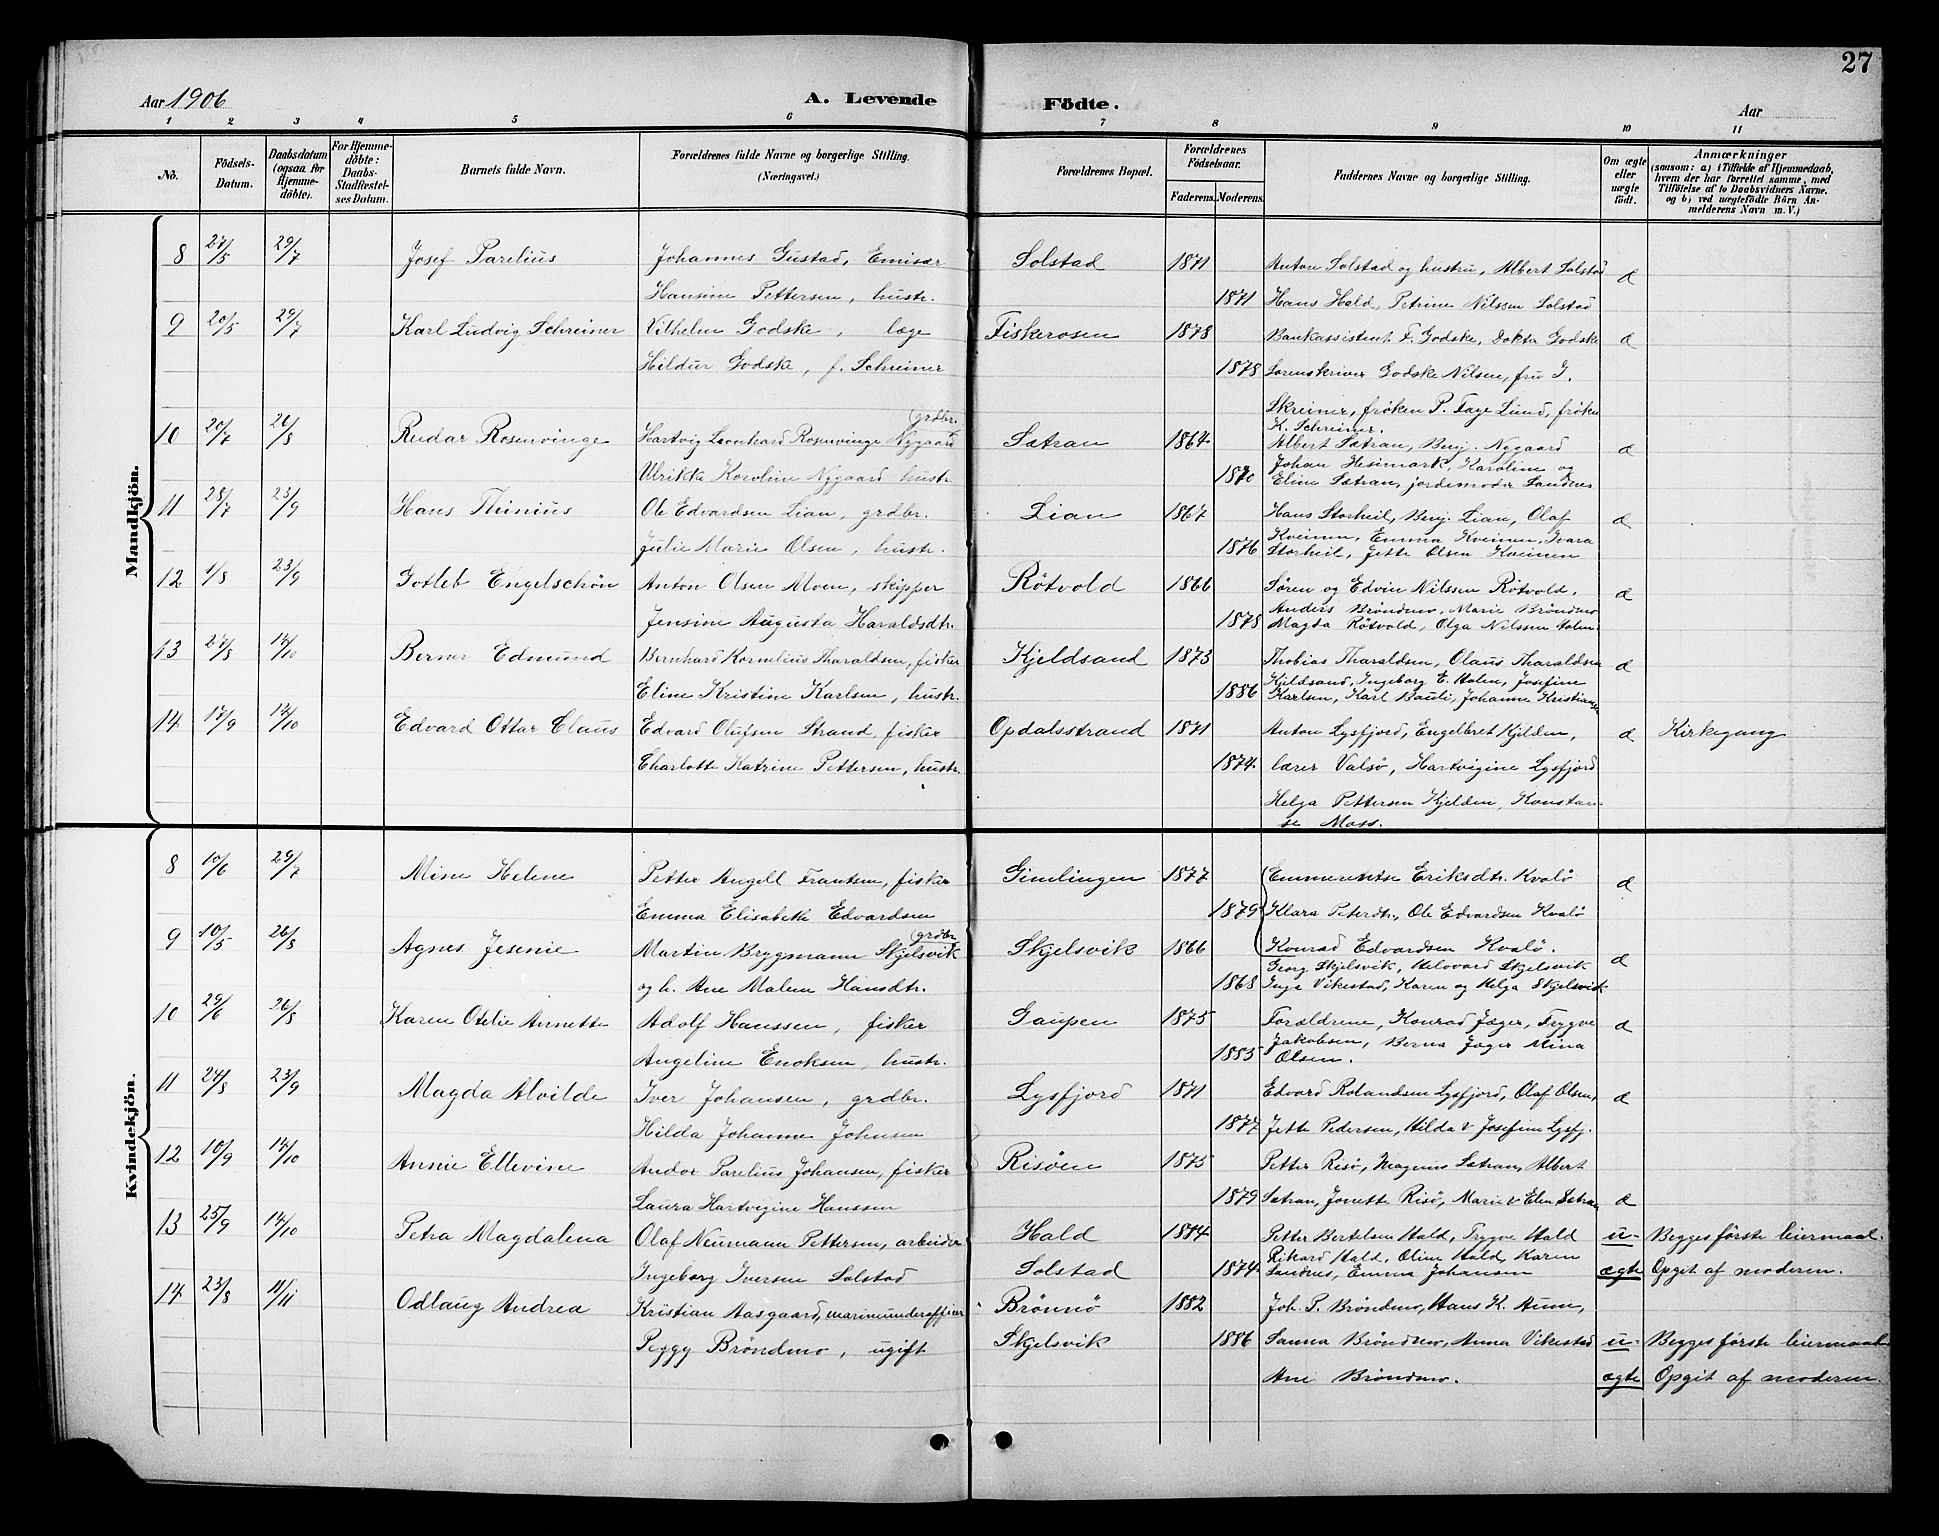 27
Aar 1906 A. Levende Födte. Aar
1 2 3 4 5 6 7 8 9 10 11
No. Födsels-Datum. Daabsdatum (ogsaa for Hjemmedöbte). For Hjemmedöbte: Daabs-Stadfæstelses Datum. Barnets fulde Navn. Forældrenes fulde Navne og borgerlige Stilling. (Næringsvei.) Forældrenes Bopæl. Forældrenes Födselsaar. Faderens. Moderens. Faddernes Navne og borgerlige Stilling. Om ægte eller uægte födt. Anmærkninger (saasom: a) i Tilfælde af Hjemmedaab, hvem der har forrettet samme, med Tilföielse af to Daabsvidners Navne, og b) ved uægtefödte Börn Anmelderens Navn m. V.)
Mandkjön.
8 27/5 29/7 Josef Parelius Johannes Gustad, Emisær Solstad 1871 Anton Solstad og hustru, Albert Solstad æ
Hansine Pettersen, hustr. 1871 Hans Hald, Petrine Nilssen Solstad
9 20/5 29/7 Karl Ludvig Schreiner Vilhelm Godske, læge Fiskerosen 1878 Bankassistent F. Godske, Doktor Godske æ
Hildur Godske, f. Schreiner 1878 Sorenskriver Godske Nilsen, fru I.
Skreiner, frøken P. Faye Lund, frøken
K. Schreiner.
10 20/7 26/8 Reidar Rosenvinge Hartvig Leonhard Rosenvinge Nygaard grdbr. Sætran 1864 Albert Sætran, Benj. Nygaard æ
Ulrikke Karoline Nygaard hustr. 1870 Johan Hesimark, Karoline og
Eline Sætran, jordemoder Sandnes
11 28/7 23/9 Hans Thinius Ole Edvardsen Lian, grdbr. Lian 1867 Hans Storheil, Benj. Lian, Olaf æ
Julie Marie Olsen, hustr. 1876 Kveinen, Emma Kveinen, Ivara
Storheil, Jette Olsen Kveinen
12 1/8 23/9 Gotleb Engelschøn Anton Olsen Moen, skipper Røtvold 1866 Søren og Edvin Nilssen Røtvold, æ
Jensine Augusta Haraldsdtr. 1878 Anders Brøndmo, Marie Brøndmo
Magda Røtvold, Olga Nilssen Holm
13 27/8 14/10 Berner Edmund Bernhard Kornelius Tharaldsen, fisker Kjeldsand 1873 Thobias Tharaldsen, Olaus Tharaldsen æ
Eline Kristine Karlsen, hustr. 1886 Kjeldsand, Ingeborg E. Holen, Josefine
Karlsen, Karl Pauli, Johanne Kristians
14 17/9 14/10 Edvard Ottar Claus Edvard Olufsen Strand, fisker Opdalsstrand 1871 Anton Lysfjord, Engelbret Kjelden, æ Kirkegang
Charlotte Katrine Pettersen, hustr. 1874 lærer Valsø, Hartvigine Lysfjord
Helga Pettersen Kjelden, Konstan-
se Moss.
Kvindekjön.
8 10/6 29/7 Mine Helene Petter Angell Frantsen, fisker Gimlingen 1877 Emmerentse Eriksdtr. Kvalø æ
Emma Elisabeth Edvardsen 1879 Klara Petersdtr., Ole Edvardsen Kvalø
Konrad Edvardsen Kvalø.
9 10/5 26/8 Agnes Jesenie Martin Brygmann Skjelsvik grdbr. Skjelsvik 1866 Georg Skjelsvik, Helovard Skjelsvik æ
og h. Ane Malene Hansdtr. 1868 Inga Vikestad, Karen og Helga Skjelsvik
10 29/6 26/8 Karen Otelie Annette Adolf Hanssen, fisker Gaupen 1875 Forældrene, Konrad Jæger, Trygve æ
Angeline Enoksen, hustr. 1885 Jakobsen, Berna Jæger Mina
Olsen.
11 24/8 23/9 Magda Alvilde Iver Johansen, grdbr. Lysfjord 1871 Edvard Rolandsen Lysfjord, Olaf Olsen, æ
Hilda Johanne Johnsen 1877 Jette Pedersen, Hilda & Josefine Lysfj.
12 10/9 14/10 Annie Ellevine Andor Parelius Johansen, fisker Risøen 1875 Petter Risø, Magnus Sætran, Albert
Laura Hartvigine Hanssen 1879 Sætran, Jonette Risø, Marie & Elen Sætran æ
13 25/9 14/10 Petra Magdalena Olaf Neumann Pettersen, arbeider Hald 1884 Petter Bertelsen Hald, Trygve Hald u- Begges første leiermaal.
Ingeborg Iversen Solstad Solstad 1874 Rikard Hald, Oline Hald, Karen
Sandnes, Emma Johansen ægte Opgit af moderen.
14 23/8 11/11 Odlaug Andrea Kristian Aasgaard, marineunderofficer Brønnø 1882 Joh. P. Brøndmo, Hans K. Aune,
Peggy Brøndmo, ugift Skjelsvik 1886 Sanna Brøndmo, Anna Vikestad u- Begges første leiermaal.
Ane Brøndmo. ægte Opgit af moderen.